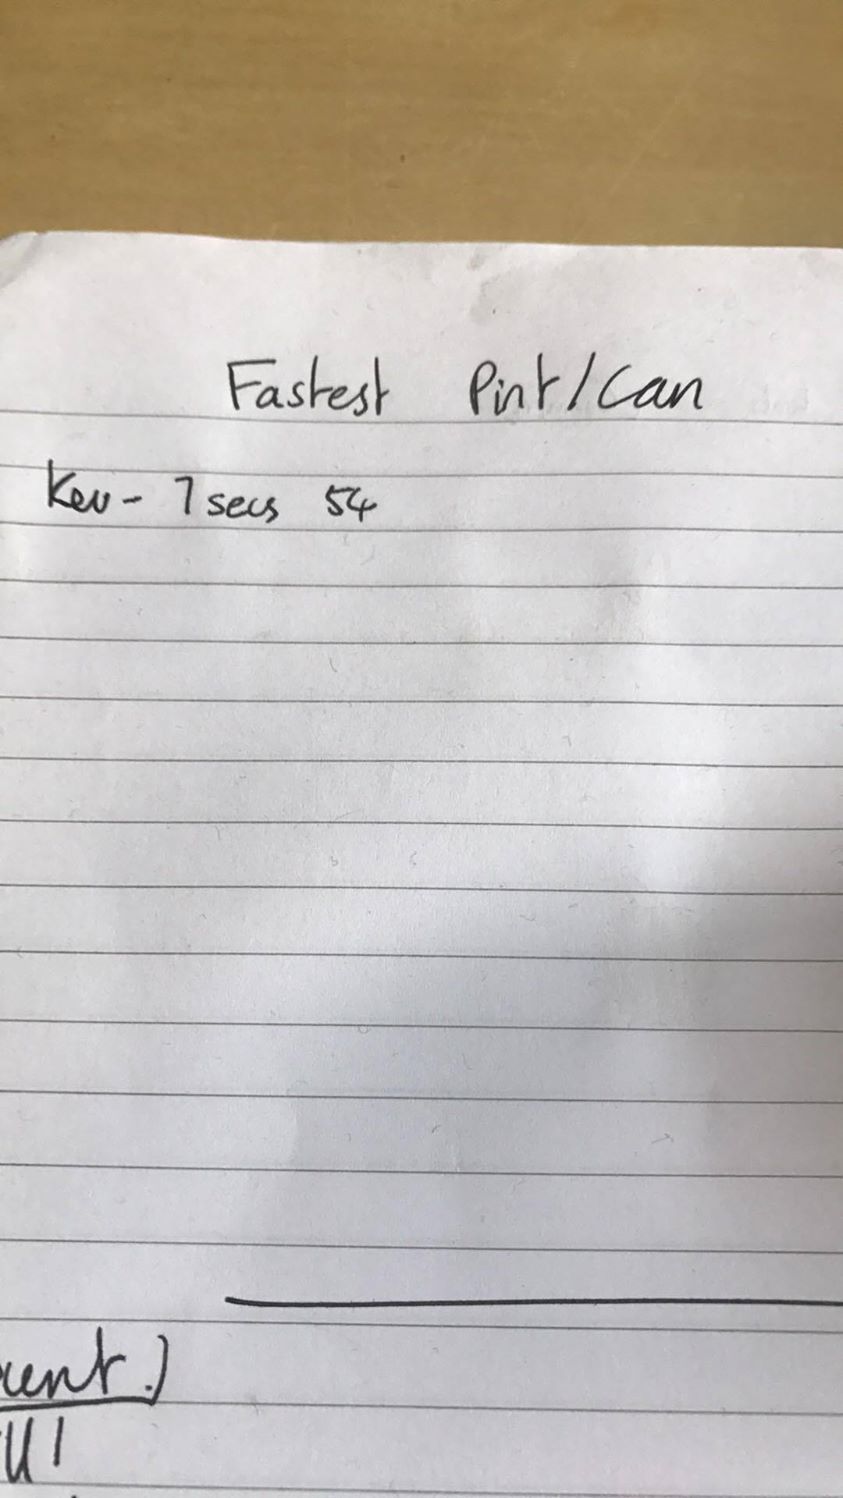 Fastest Pint/Can
Kev - 7 secs 54